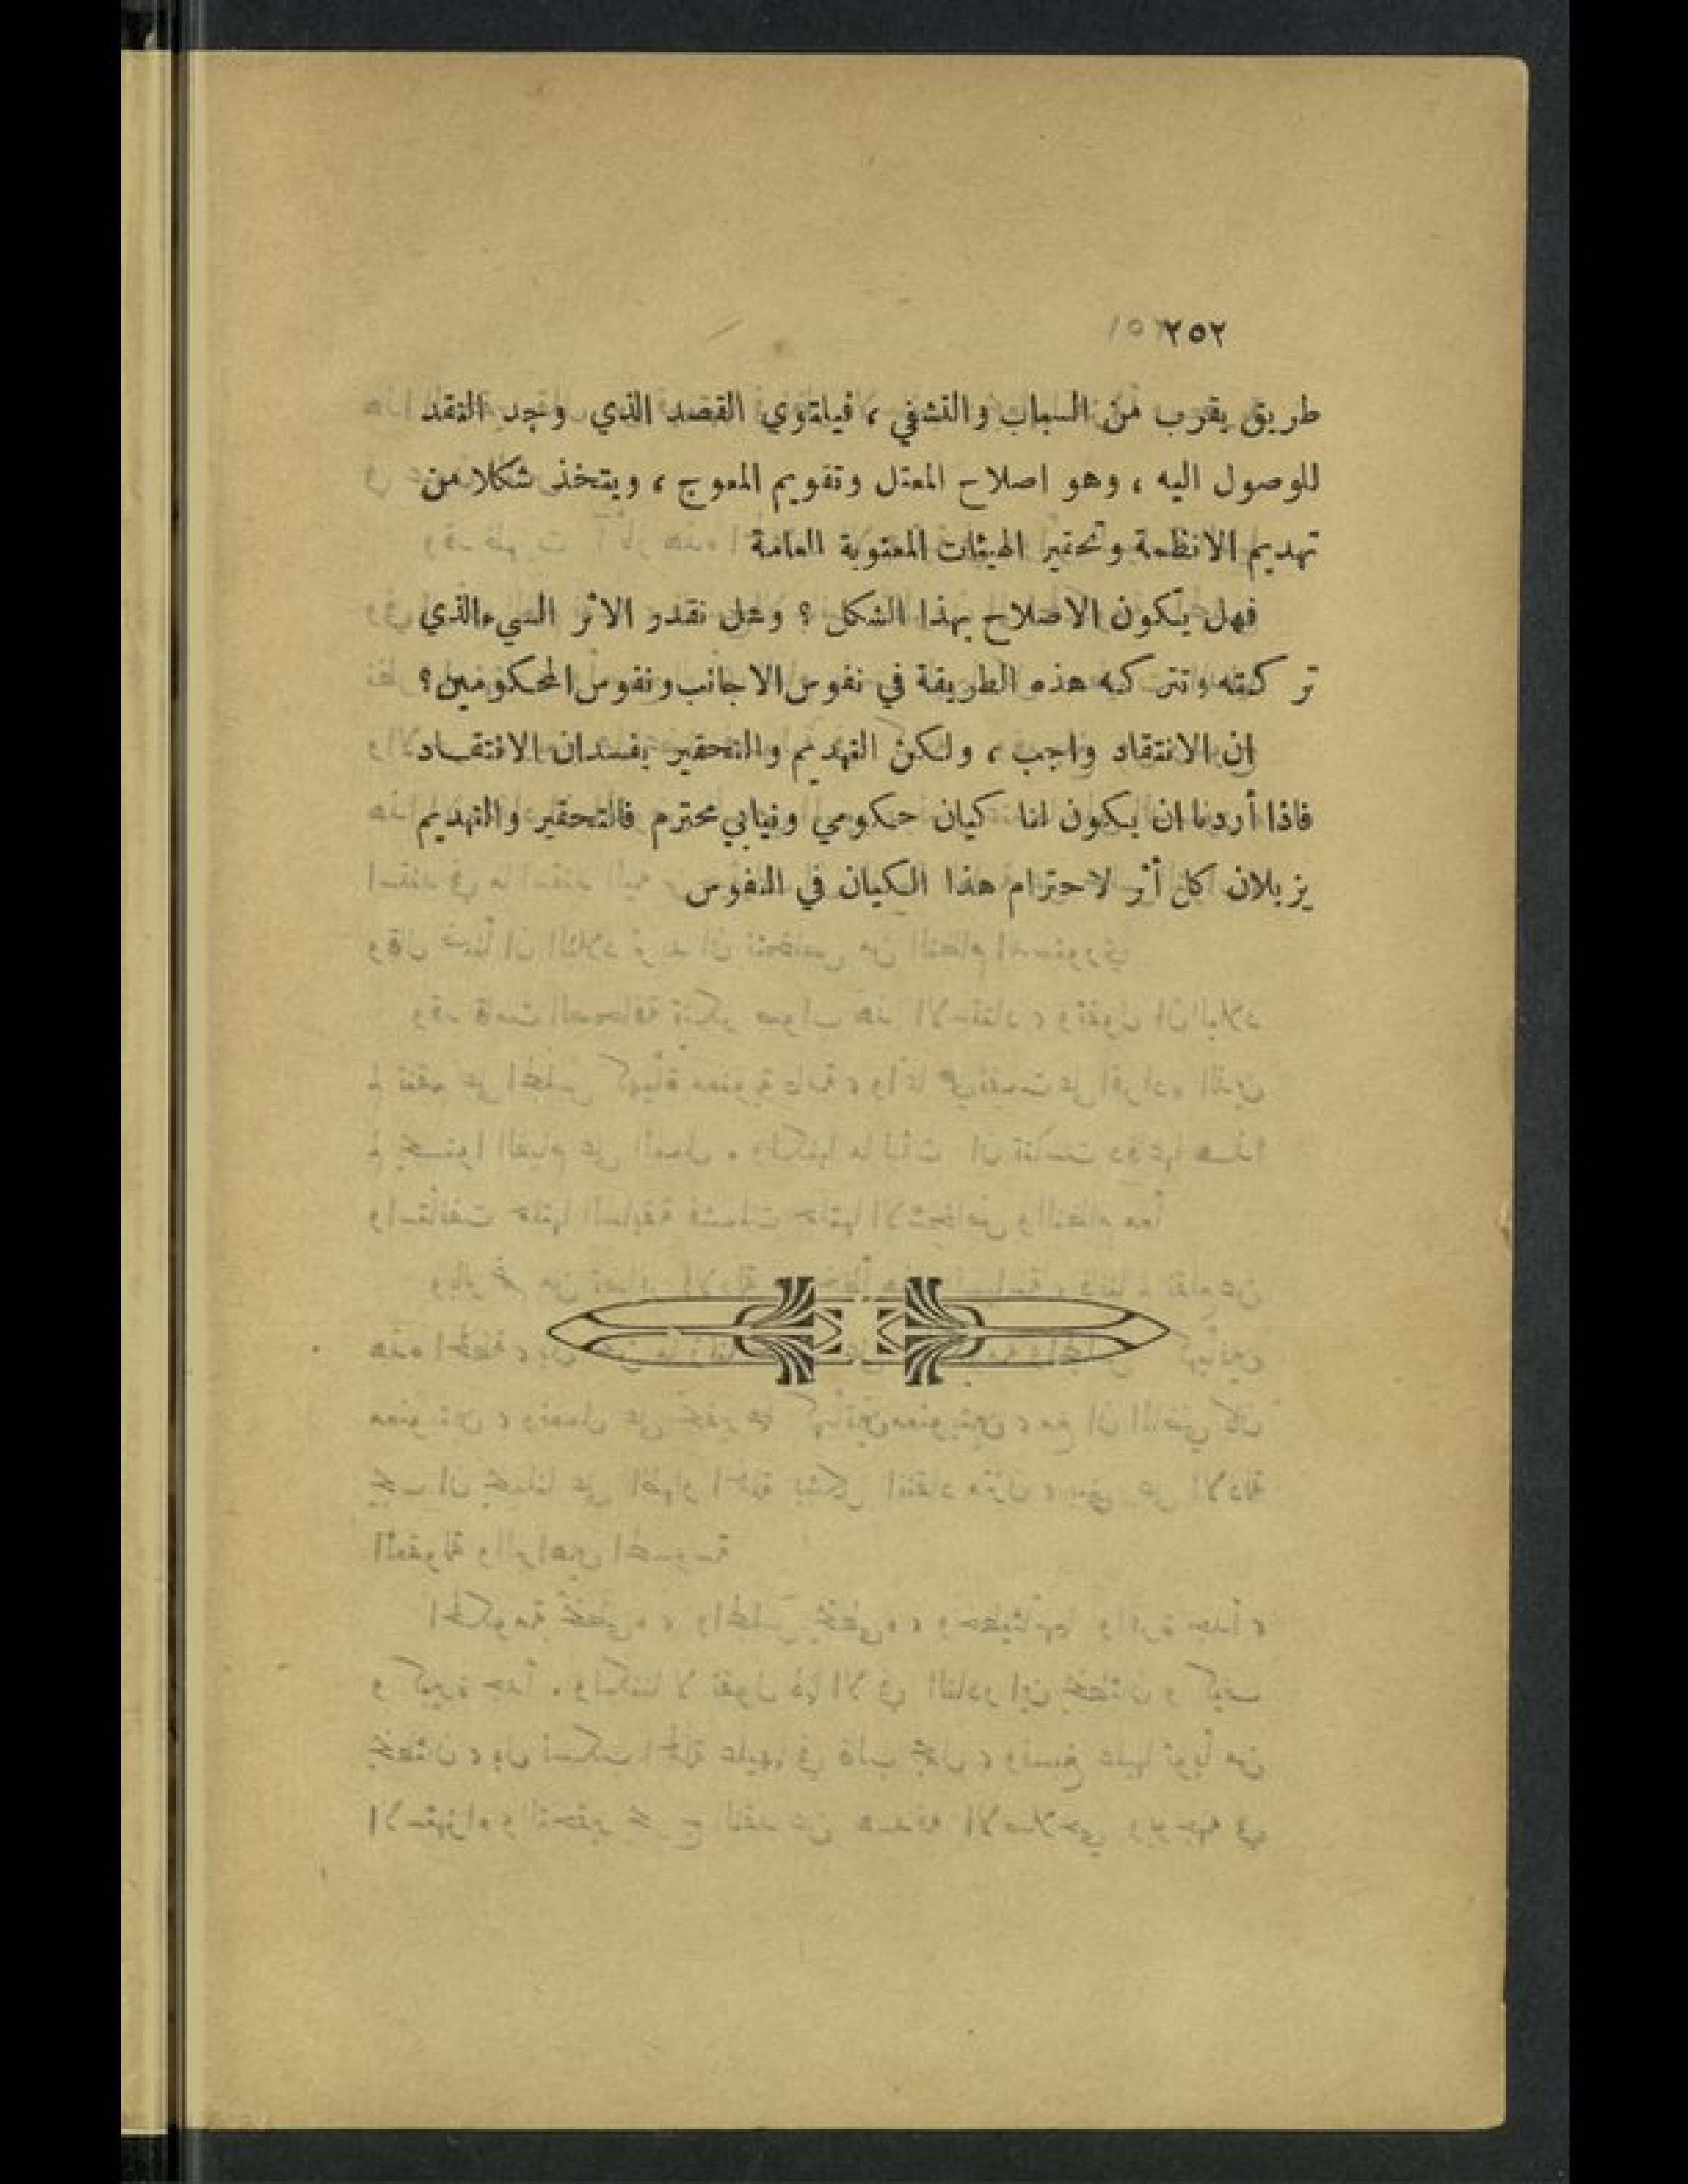 ٢٥٢
طريق يقرب من السباب والتشفي ، فيلتوي القصد الذي وجد النقد
للوصول اليه ، وهو اصلاح المعتل وتقويم المعوج ، ويتخذ شكلا من
تهديم الانظمة وتحقير الهيئات المعنوية العامة
فهل يكون الاصلاح بهذا الشكل ؟ وهل نقدر الاثر السيء الذي
تركته وتتركه هذه الطريقة في نفوس الاجانب ونفوس المحكومين ؟
ان الانتقاد واجب ، ولكن التهديم والتحقير يفسدان الانتقاد
فاذا أردنا ان يكون لنا كيان حكومي ونيابي محترم فالتحقير والتهديم
يزيلان كل أثر لاحترام هذا الكيان في النفوس